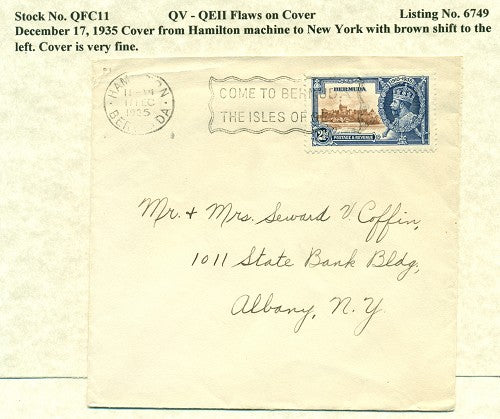 Stock No. QFC11 QV - QEII Flaws on Cover Listing No. 6749
December 17, 1935 Cover from Hamilton machine to New York with brown shift to the
left. Cover is very fine.
HAM TON
17 DEC
1935
BER DA
COME TO BERMU
THE ISLES OF
BERMUDA
2½d
POSTAGE & REVENUE
Mr. & Mrs. Seward V Coffin,
1011 State Bank Bldg,
Albany, N. Y.